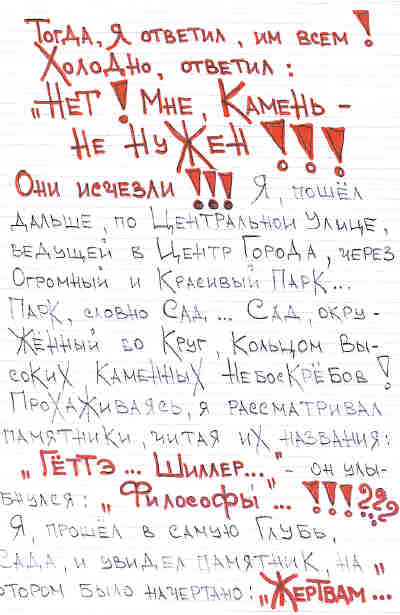 Тогда, я ответил, им всем!
Холодно, ответил:
„Нет! Мне, Камень -
не нужен!!!
Они исчезли!!! Я, пошёл
дальше, по Центральной Улице,
ведущей в Центр Города, через
Огромный и Красивый Парк...
Парк, словно Сад... Сад, окру-
жённый во Круг, Кольцом Вы-
соких Каменных Небоскрёбов!
Прохаживаясь, я рассматривал
памятники, читая их названия:
„Гёттэ... Шиллер..." - он улы-
бнулся: „Философы"... !!!???
Я, прошёл в самую Глубь,
сада, и увидел памятник, на
отором было начертано: „Жертвам...